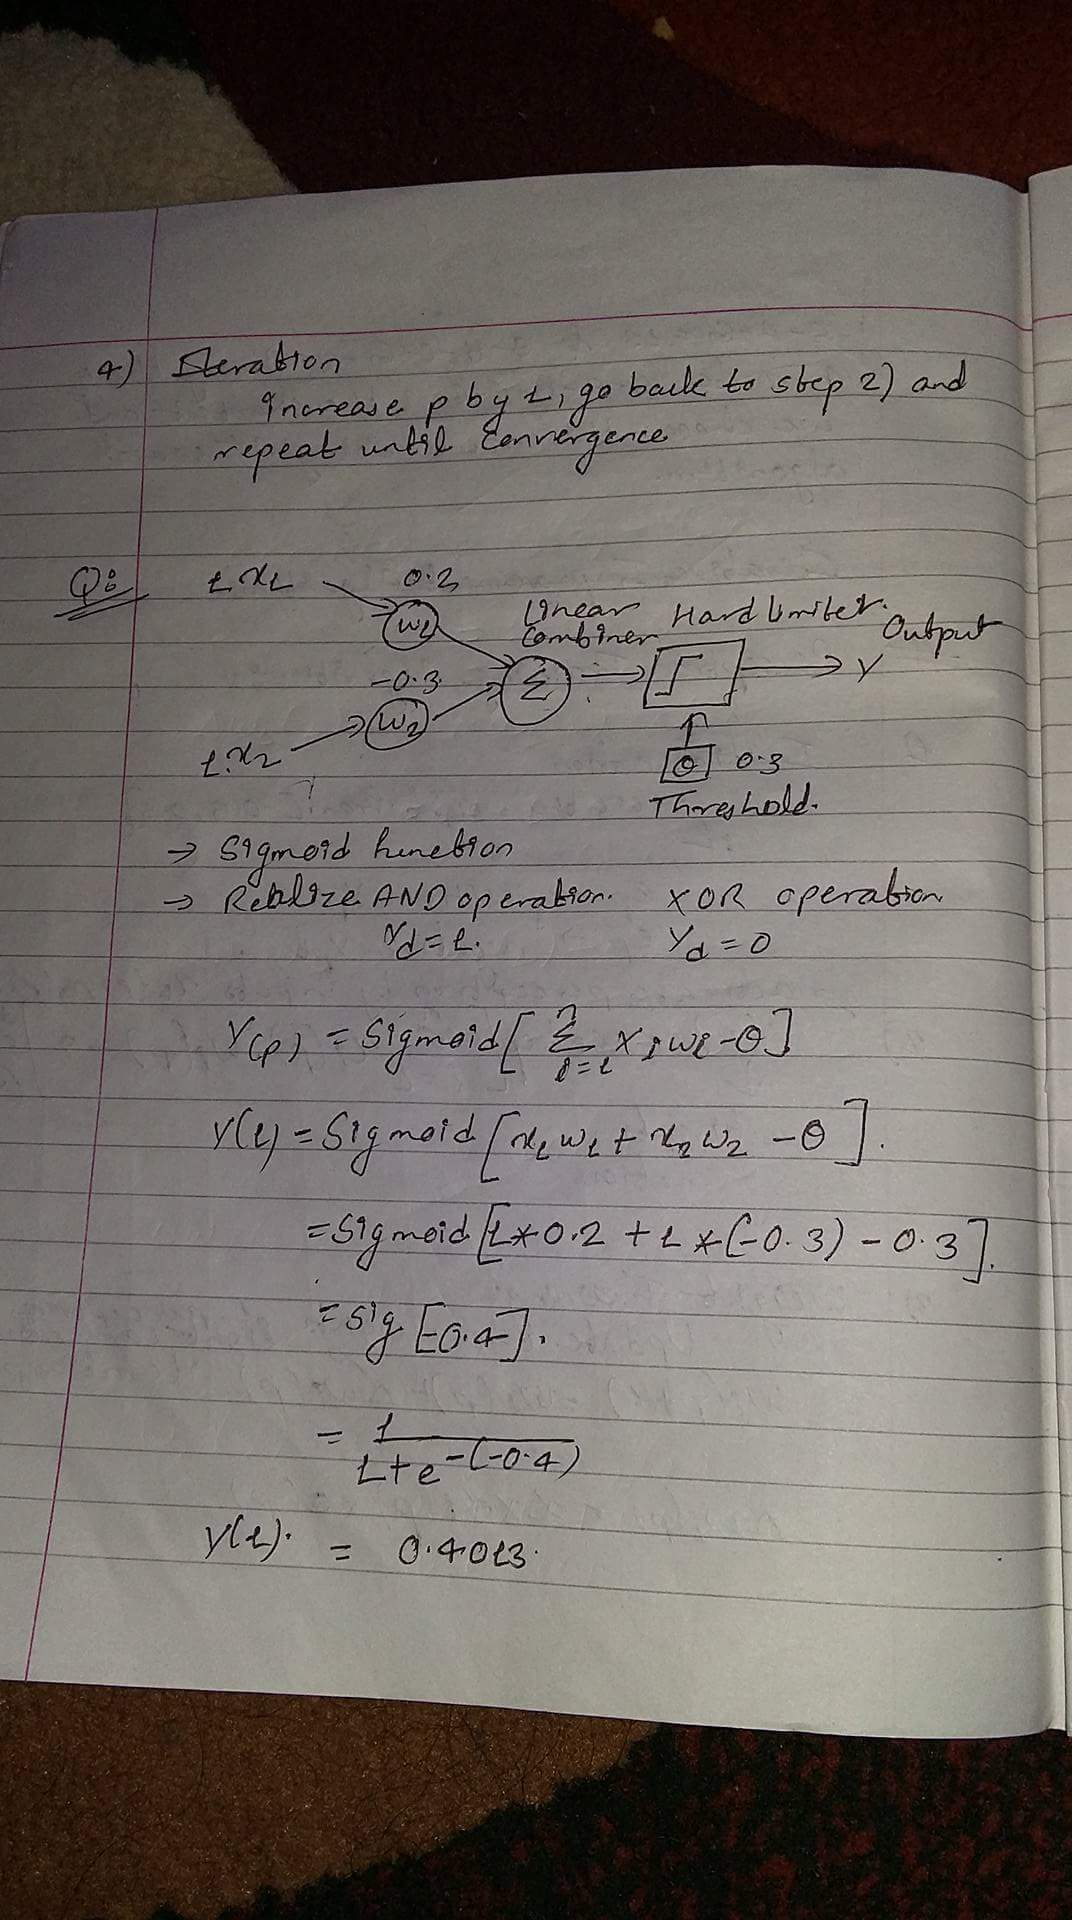 4) Iteration
Increase p by 1, go back to step 2) and
repeat until convergence
Q:
1 x1
0.2
w1
Linear
Combiner
Hard limiter.
Output
-0.3
w2
Σ
Y
1 x2
θ 0.3
Threshold.
→ Sigmoid function
→ Realize AND operation. XOR operation
Yd = 1. Yd = 0
Y(p) = Sigmoid [ n Σ i=1 xi wi - θ ]
Y(1) = Sigmoid [ x1 w1 + x2 w2 - θ ].
= Sigmoid [ 1 * 0.2 + 1 * (-0.3) - 0.3 ].
= sig [-0.4].
= 1 / 1 + e^-(-0.4)
Y(1). = 0.4013.